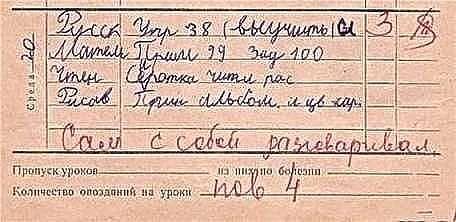 Среда 20
Русск Упр 38 (выучить) 3
Матем Прим 99 Зад 100
Чтен Сиротка читл рас
Рисов Прин альбом и цв кар.
Сам с собой разговаривал
Пропуск уроков из них по болезни
Количество опозданий на уроки пов 4